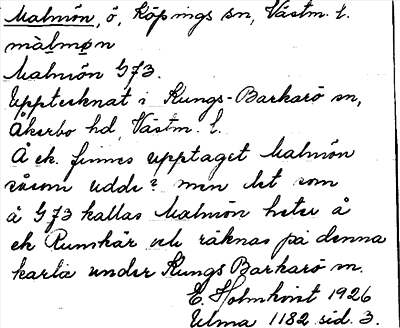 Malmön, ö, Köpings sn, Västm. l.
màlmøn
Malmön G73.
Upptecknat i Kungs-Barkarö sn,
Åkerbo hd, Västm. l.
Å ek. finnes upptaget Malmön
såsom udde? men det som
å G73 kallas Malmön heter å
ek Rumskär och räknas på denna
karta under Kungs Barkarö sn.
E. Holmkvist 1926
Ulma 1182 sid. 3.